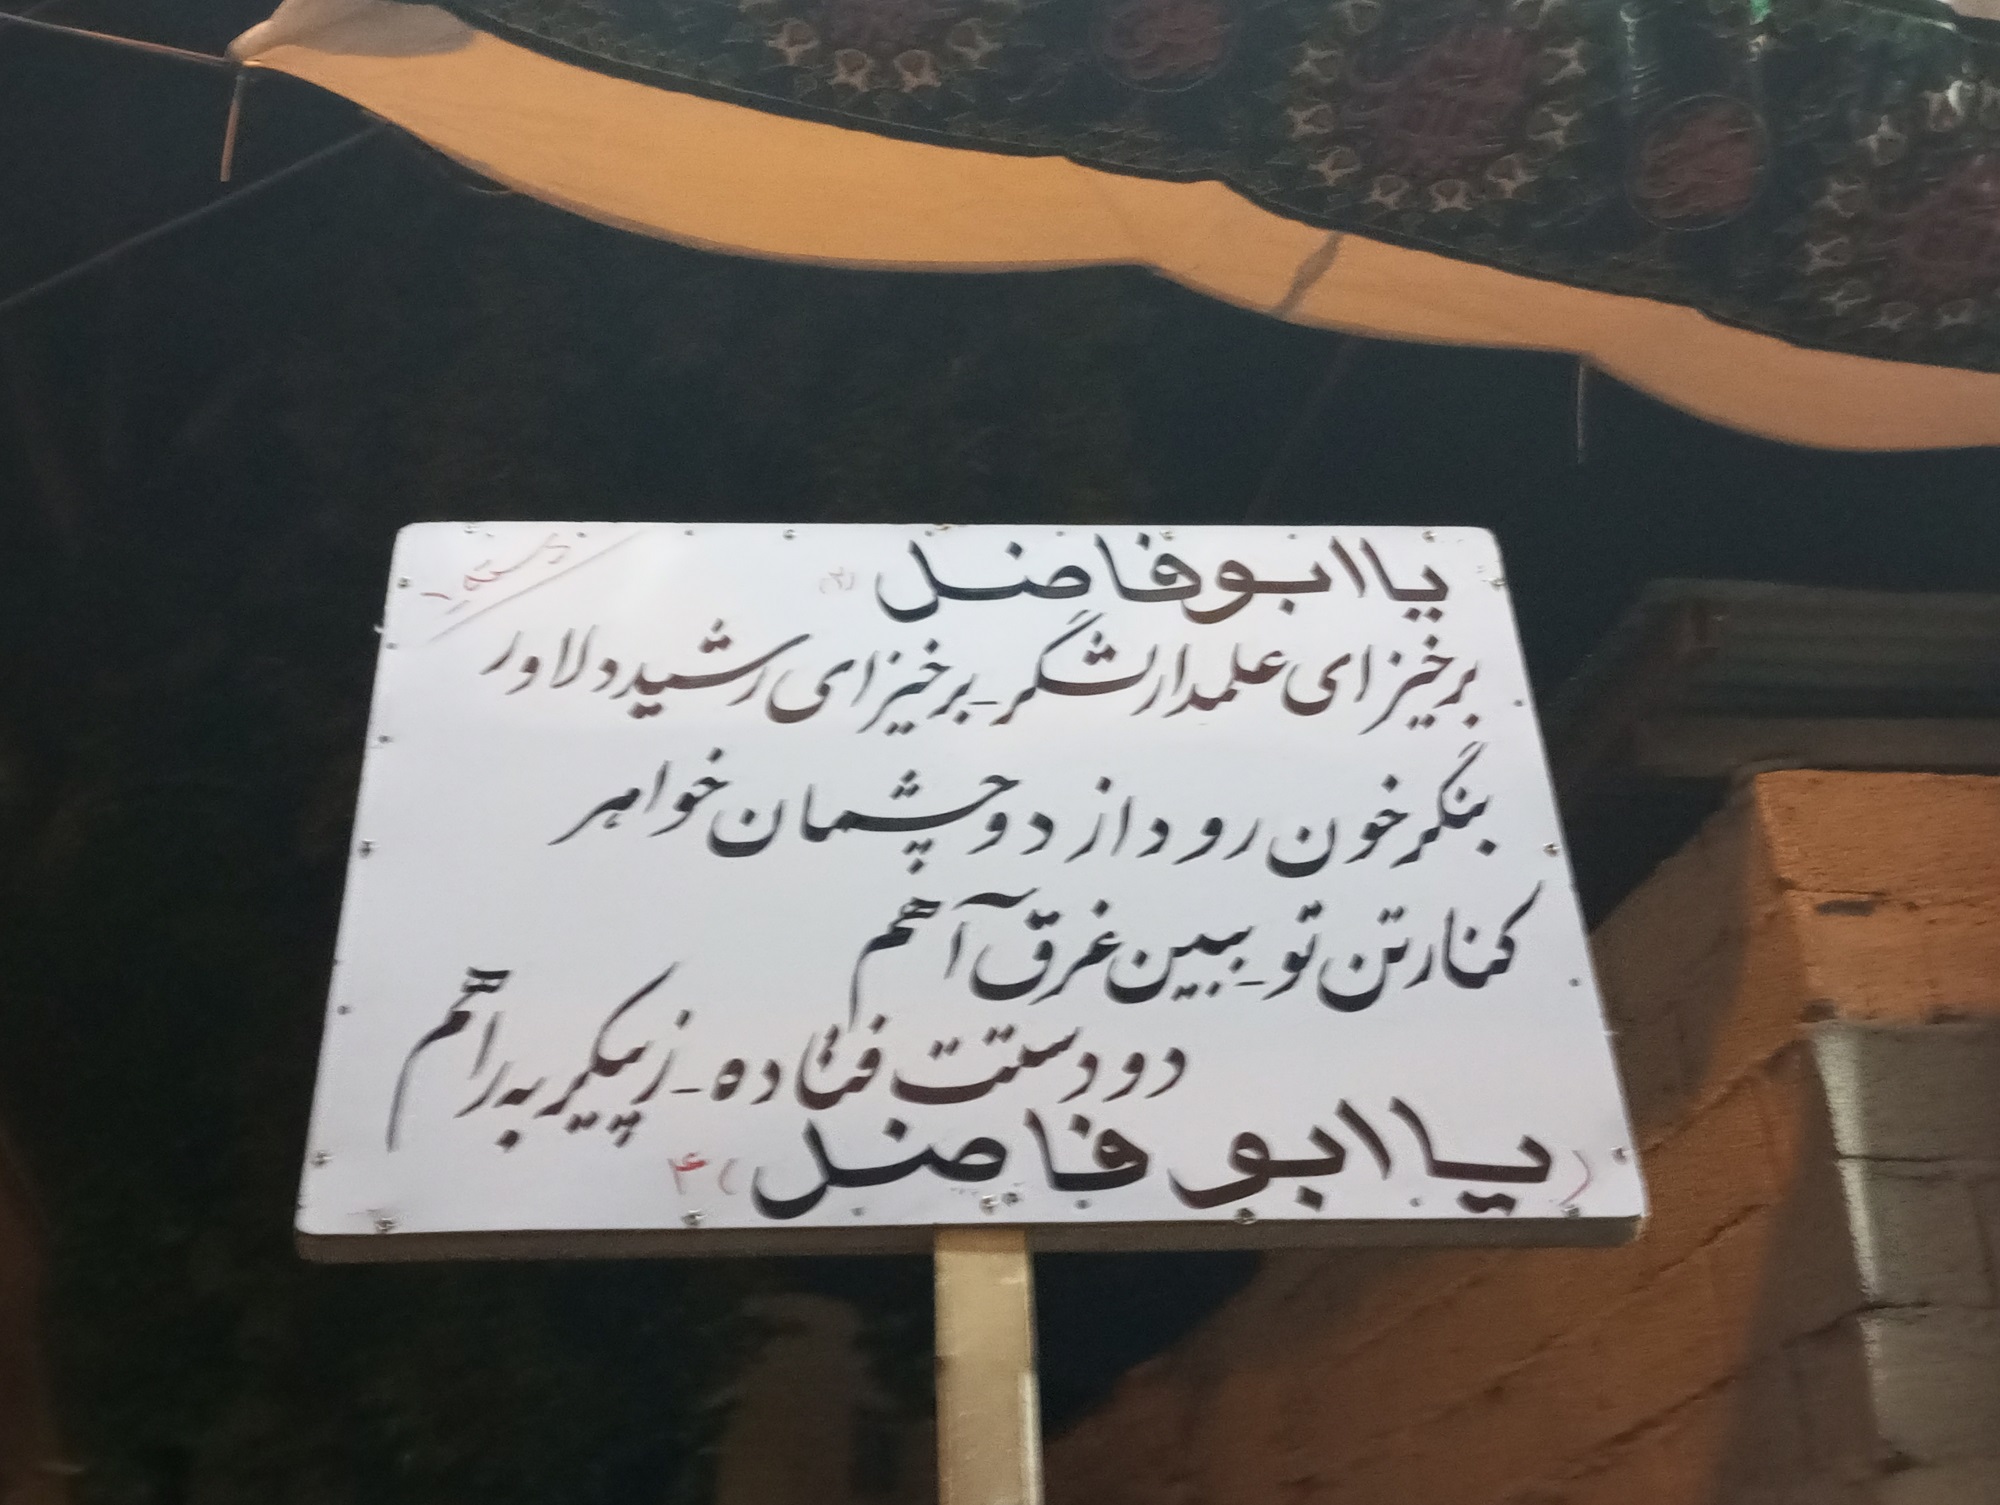 دسته ۱
یا ابوفاضل (۲)
برخیز ای علمدار لشگر ـ برخیز ای رشید دلاور
بنگر خون رود از دو چشمان خواهر
کنار تن تو ـ ببین غرق آهم
دو دستت فتاده ـ ز پیکر به راهم
(یا ابو فاضل) ۴